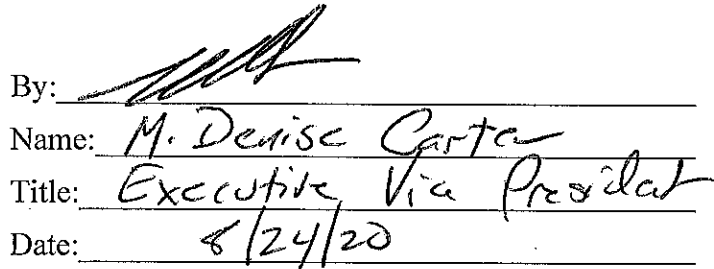 By:
Name: M. Denise Carter
Title: Executive Vice President
Date: 8/24/20